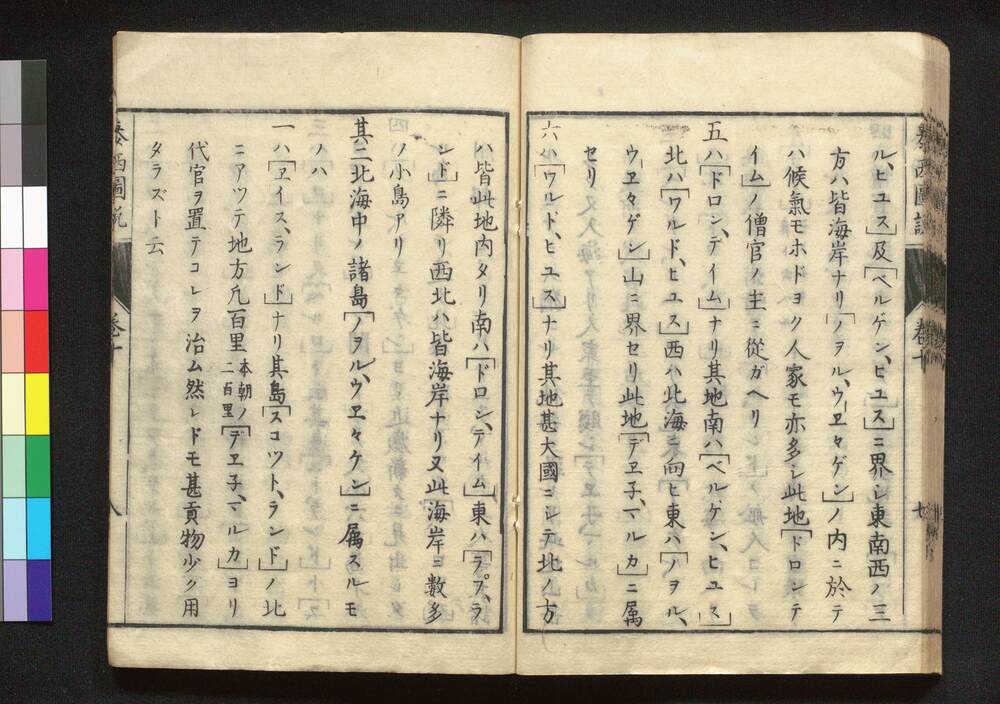 泰西圖説
卷十
七
ル、ヒユス」及「ベルゲン、ヒユス」ニ界シ東南西ノ三
方ハ皆海岸ナリ「ノヲル、ウヱ々ゲン」ノ内ニ於テ
ハ候氣モホドヨク人家モ亦多シ此地「ドロンテ
イム」ノ僧官ノ主ニ從ガヘリ
五ハ「ドロン、デイム」ナリ其地南ハ「ベルゲン、ヒユス」
北ハ「ワルド、ヒユス」西ハ北海ニ向ヒ東ハ「ノヲル、
ウヱ々ゲン」山ニ界セリ此地「デヱ子、マルカ」ニ属
セリ
六ハ「ワルド、ヒユス」ナリ其地甚大國ニシテ北ノ方
ハ皆此地内タリ南ハ「ドロン、テイム」東ハ「ラプ、ラ
ンド」ニ隣リ西北ハ皆海岸ナリ又此海岸ヨ數多
ノ小島アリ
其二北海中ノ諸島「ノヲル、ウヱ々ケン」ニ属スルモ
ノハ
一ハ「ヱイス、ランド」ナリ其島「スコツト、ランド」ノ北
ニアツテ地方凡百里本朝ノ二百里「デヱ子、マルカ」ヨリ
代官ヲ置テコレヲ治ム然レドモ甚貢物少ク用
タラズト云
泰西圖説
卷十
八